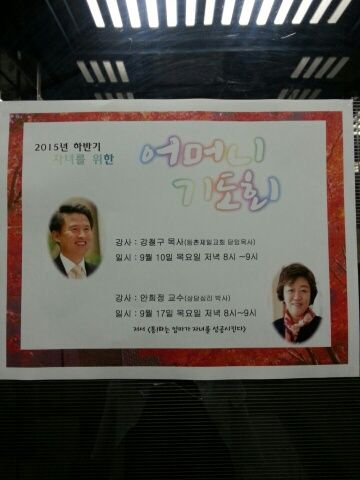 2015년 하반기
자녀를 위한
어머니
기도회
강사 : 강철구 목사(등촌제일교회 담임목사)
일시 : 9월 10일 목요일 저녁 8시 ~9시
강사 : 안희정 교수(상담심리 박사)
일시 : 9월 17일 목요일 저녁 8시~9시
저서 <통하는 엄마가 자녀를 성공시킨다>